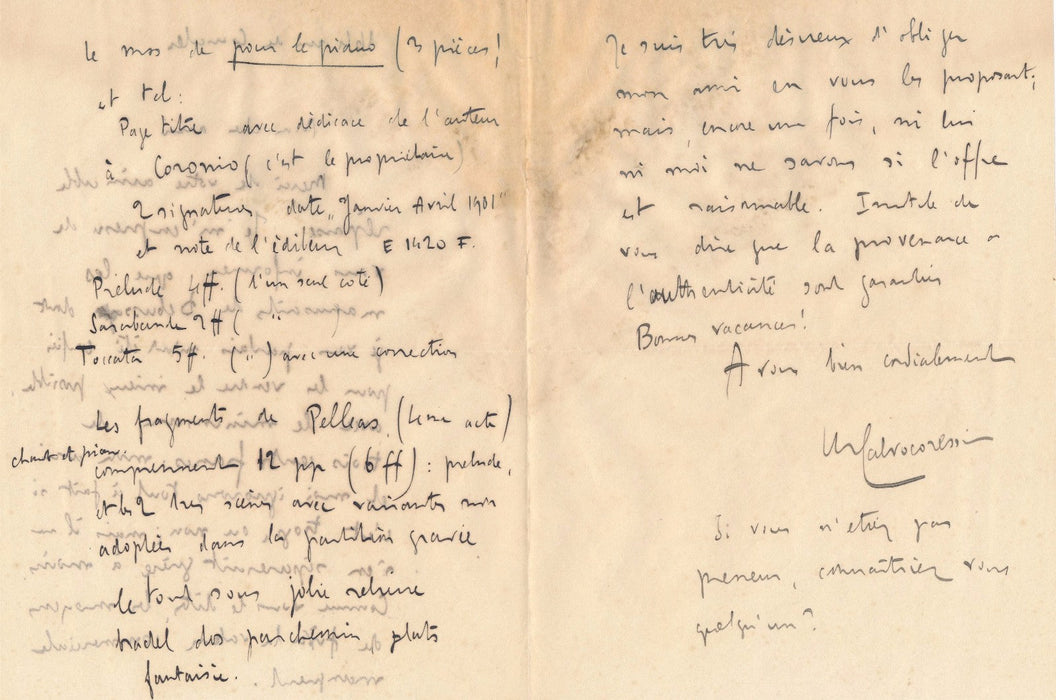 le mss de pour le piano (3 pièces)
et tel :
Page titre avec dédicace de l'auteur
à Coronio (c'est le propriétaire)
2 signatures date "Janvier Avril 1901"
et note de l'éditeur E 1420 F.
Prélude 4ff. (l'un seul coté)
Sarabande 2ff ( " )
Toccata 5ff. ( " ) avec une correction
Les fragments de Pelleas (4eme acte)
chant et piano
comprennent 12 pp (6 ff) : prelude,
et les 2 1res scènes avec variantes non
adoptées dans la partition gravée
le tout sous jolie reliure
bradel dos parchemin plats
fantaisie.
Je suis très désireux d'obliger
mon ami en vous les proposant;
mais, encore une fois, ni lui
ni moi ne savons si l'offre
est raisonnable. Inutile de
vous dire que la provenance et
l'authenticité sont garanties
Bonnes vacances!
A vous bien cordialement
MCalvocoressi
Si vous n'étiez pas
preneur, connaîtriez vous
quelqu'un?